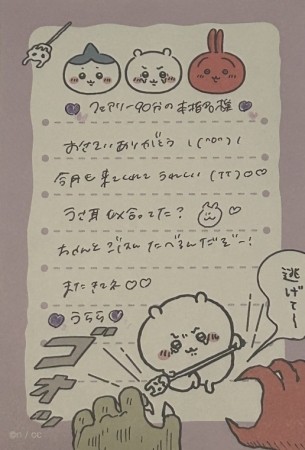 フェアリー90分の本指名様
おさそいありがとう ! (^o^) !
今月も来てくれてうれしい (TT) ♡♡
うさ耳似合ってた? ♡
ちゃんとごはんたべるんだぞー!
またきてネ ♡♡
うらら
逃げて〜
ゴオッ
©n / cc